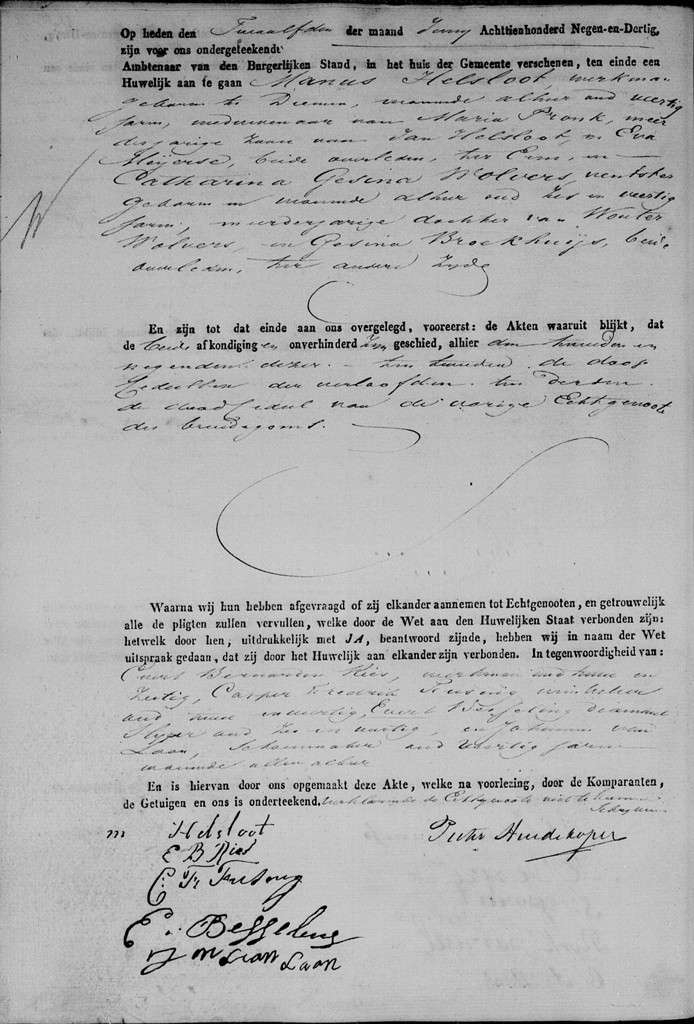 Op heden den Twaalfden der maand Juny Achttienhonderd Negen-en-Dertig,
zijn voor ons ondergeteekendt
Ambtenaar van den Burgerlijken Stand, in het huis der Gemeente verschenen, ten einde een
Huwelijk aan te gaan Manus Helsloot, werkman
geboren te Diemen, woonende alhier oud veertig
jaren, weduwenaar van Maria Pronk, meer
derjarige zoon van Jan Helsloot, en Eva
Meijerse, beide overleden, ter Eenre, en
Catharina Gesina Wolvers,
geboren en woonende alhier oud zes en veertig
jaren, meerderjarige dochter van Wouter
Wolvers, en Gesina Broekhuijs, beide
overleden, ter andere zyde
En zijn tot dat einde aan ons overgelegd, vooreerst: de Akten waaruit blijkt, dat
de beide afkondigingen onverhinderd zyn geschied, alhier den tweeden en
negenden dezer. Ten tweeden de doop
Cedullen der verloofden. Ten derden
de doodcedul van de vorige Echtgenoote
des bruidegoms.
Waarna wij hun hebben afgevraagd of zij elkander aannemen tot Echtgenooten, en getrouwelijk
alle de pligten zullen vervullen, welke door de Wet aan den Huwelijken Staat verbonden zijn:
hetwelk door hen, uitdrukkelijk met JA, beantwoord zijnde, hebben wij in naam der Wet
uitspraak gedaan, dat zij door het Huwelijk aan elkander zijn verbonden. In tegenwoordigheid van:
Evert Bernardus Ries, werkman oud een en
Casper Fredrik
oud een en veertig, Evert Besseling diamant
Slyper oud zes en veertig, en Johannes van
Laan, Schoenmaker oud veertig jaren
woonende allen alhier
En is hiervan door ons opgemaakt deze Akte, welke na voorlezing, door de Komparanten,
de Getuigen en ons is onderteekend. verklarende de Echtgenoote niet te kunnen
Schryven
m Helsloot
E B Ries
C: Fr
E. Besseling
van Laan
Pieter Huidekoper